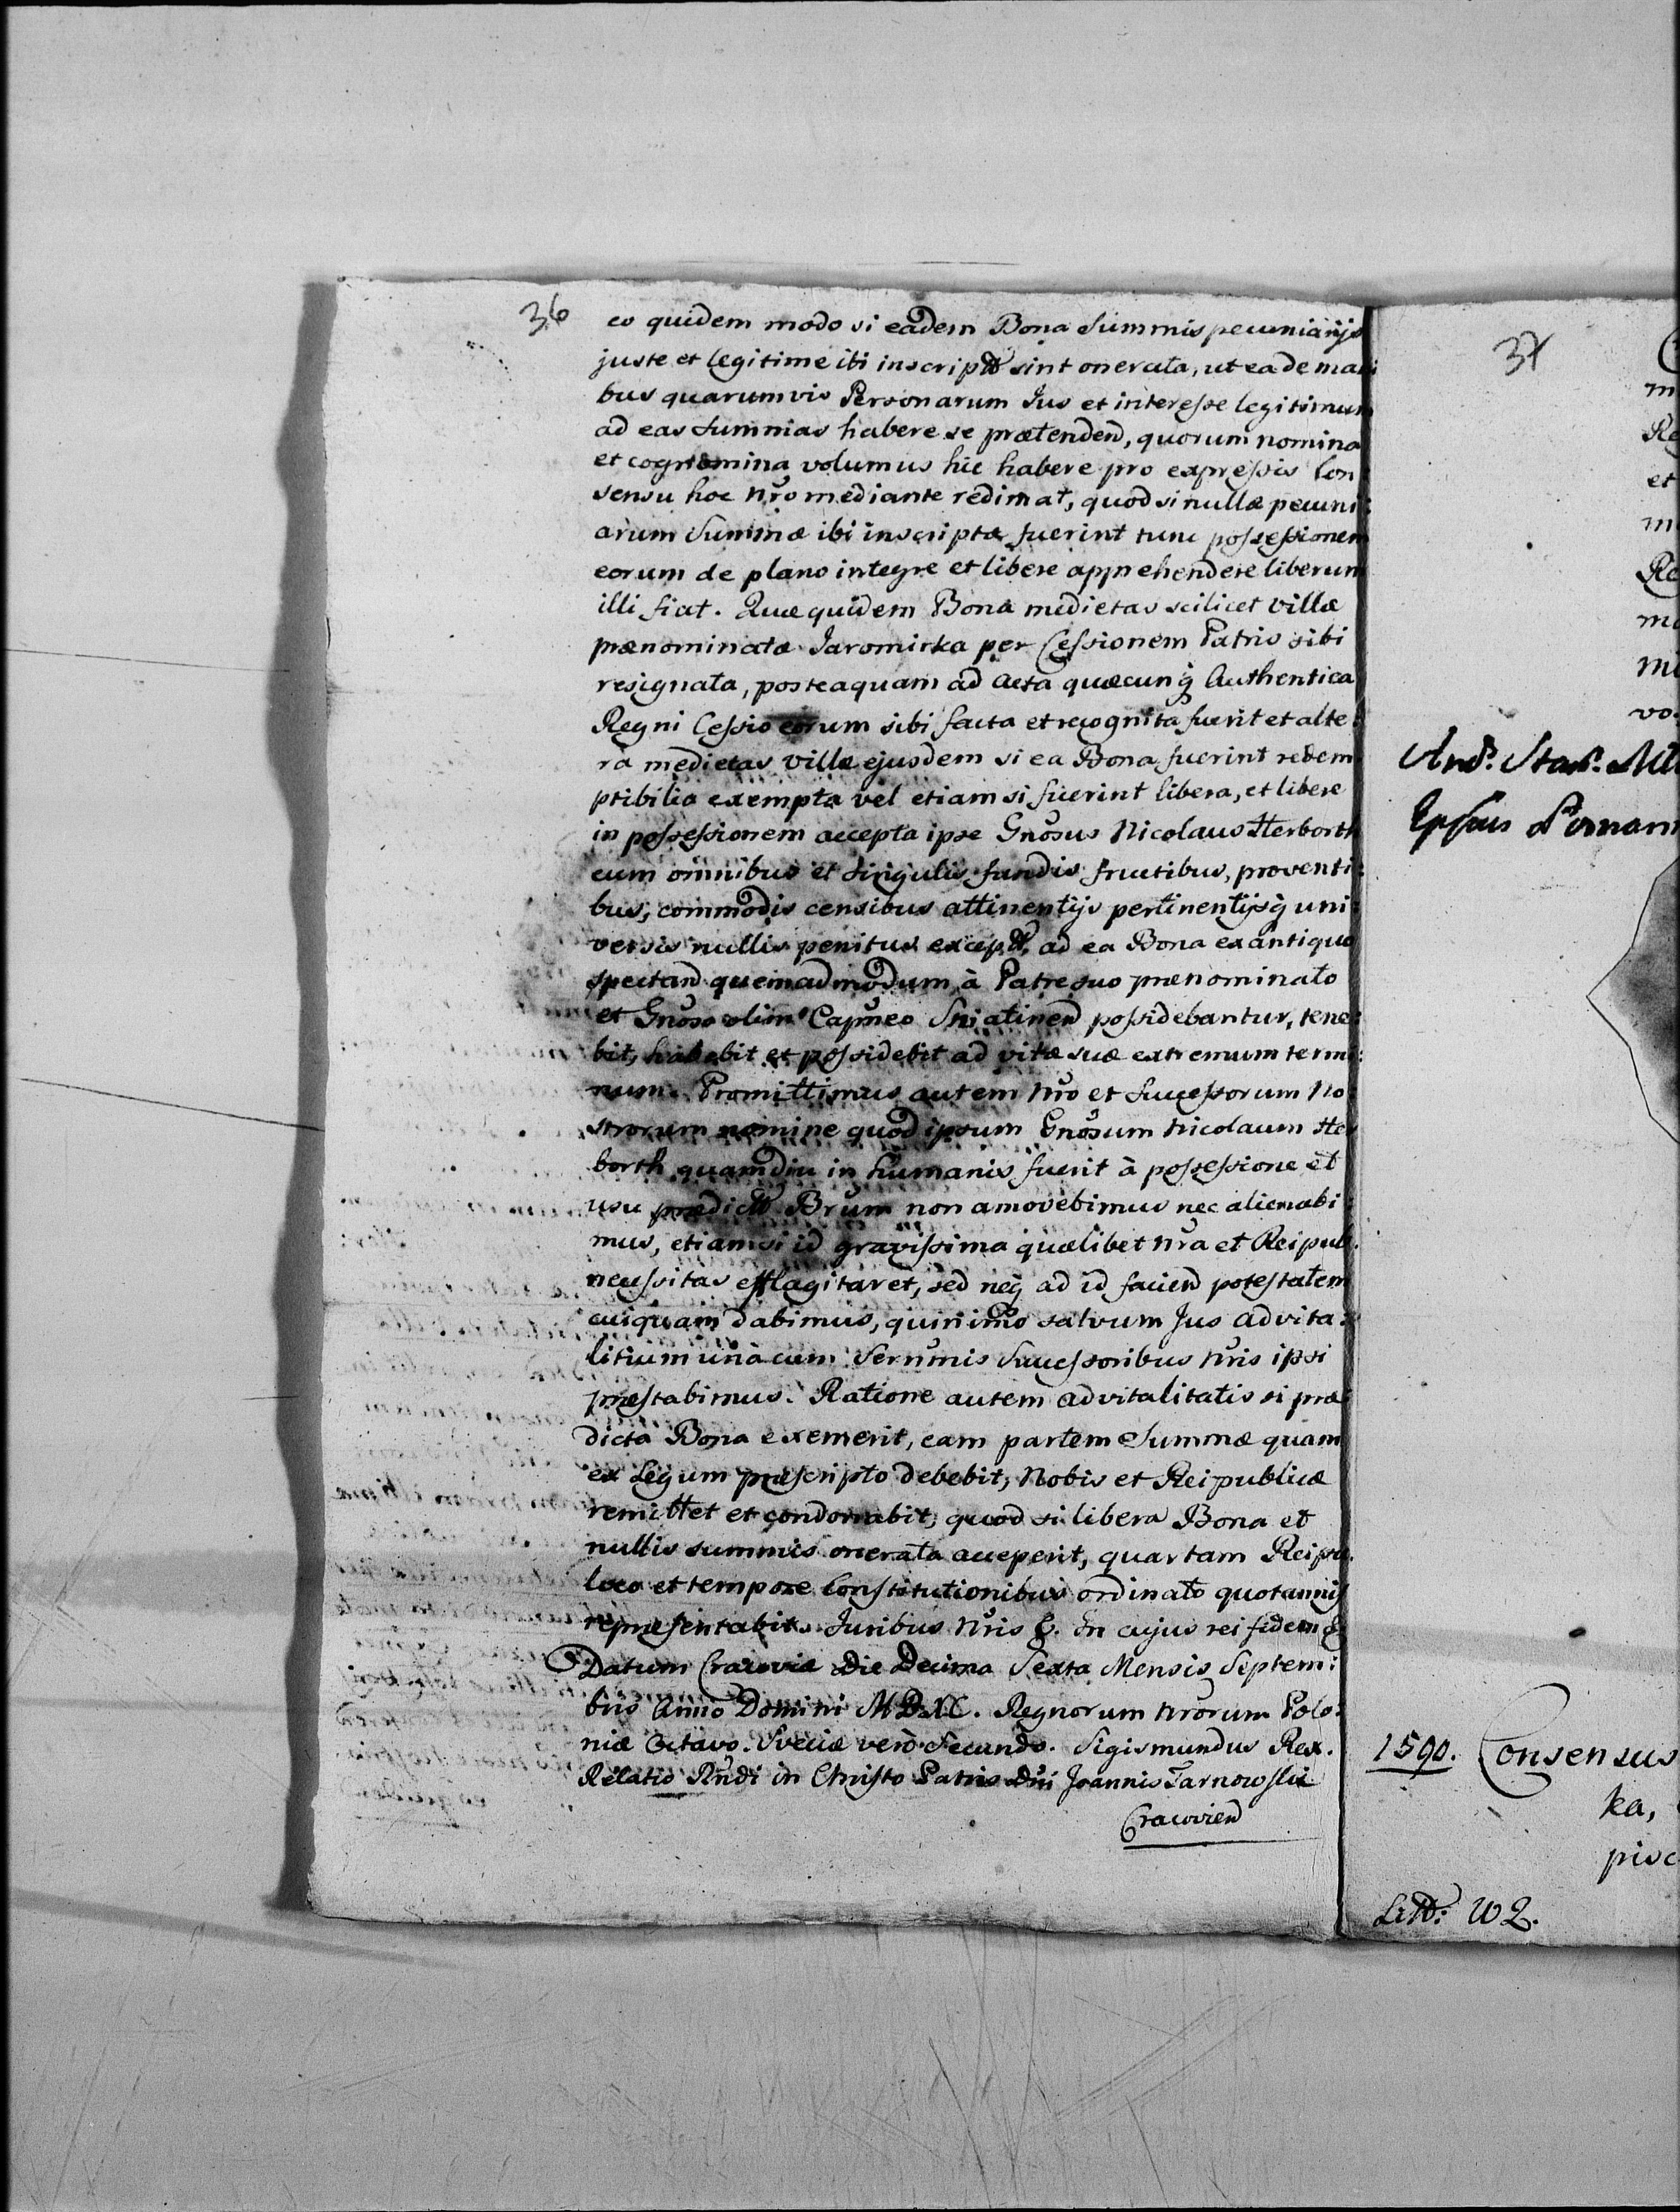 36
eo quidem modo si eadem Bona Summis pecuniarijs
juste et legitime ibi inscriptis sint onerata, ut ea de mani
bus quarumvis Personarum Jus et interesse legitimum
ad eas Summas habere se prætendend, quorum nomina
et cognomina volumus hic habere pro expressis Con
sensu hoc nro mediante redimat, quod si nullæ pecuni:
arum Summæ ibi inscriptæ fuerint tunc possessionem
eorum de plano integre et libere apprehendere liberum
illi fiat. Quæ quidem Bona medietas scilicet villæ
prænominatæ Jaromirka per Cessionem Patris sibi
resignata, posteaquam ad acta quæcunq Authentica
Regni Cessio eorum sibi facta et recognita fuerit et alte:
ra medietas villæ ejusdem si ea Bona fuerint redem
ptibilia exempta vel etiam si fuerint libera, et libere
in possessionem accepta ipse Gnosus Nicolaus Herborth
cum omnibus et singulis fundis fructibus, proventi:
bus, commodis censibus attinentijs pertinentijsq uni:
versis nullis penitus exceptis, ad ea Bona ex antiquo
spectand quemadmodum à Patre suo prænominato
et Gnoso olim Capneo Sniatinend possidebantur, tene:
bit, habebit et possidebit ad vitæ suæ extremum termi:
num. Promittimus autem nro et Successorum No
strorum nomine quod ipsum Gnosum Nicolaum Her
borth quamdiu in humanis fuerit à possessione et
usu prædictis Brum non amovebimus nec alienabi:
mus, etiamsi id gravissima quælibet nra et Reipub.
necessitas efflagitaret, sed neq ad id faciend potestatem
cuiquam dabimus, quinimo salvum Jus advita:
litium una cum Serenmis Successoribus nris ipsi
præstabimus. Ratione autem advitalitatis si præ
dicta Bona exemerit, eam partem Summæ quam
ex Legum præscripto debebit, Nobis et Reipublicæ
remittet et condonabit, quod si libera Bona et
nullis summis onerata acceperit, quartam Reipu.
loco et tempore Constitutionibus ordinato quotannis
repræsentabit. Juribus nris &. In cujus rei fidem &
Datum Cracoviæ Die Decima Sexta Mensis Septem:
bris Anno Domini MDXC. Regnorum nrorum Polo:
niæ Octavo. Sveciæ vero Secundo. Sigismundus Rex.
Relatio Rndi in Christo Patris Dni Joannis Tarnowski
Cracovien
37
1590. Consensus
ka,
pisc
Litt: W2.